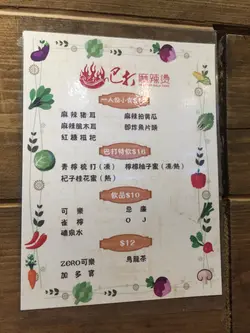 巴打 麻辣燙
麻辣豬耳 麻辣拍黃瓜
麻辣風木耳 即炸魚片頭
紅糖糍粑
巴打特飲$16
青檸梳打(凍) 檸檬柚子蜜(凍/熱)
杞子桂花蜜(熱)
飲品$10
可樂 忌廉
雀檸 O J
礦泉水
$12
ZERO可樂 烏龍茶
加多寶